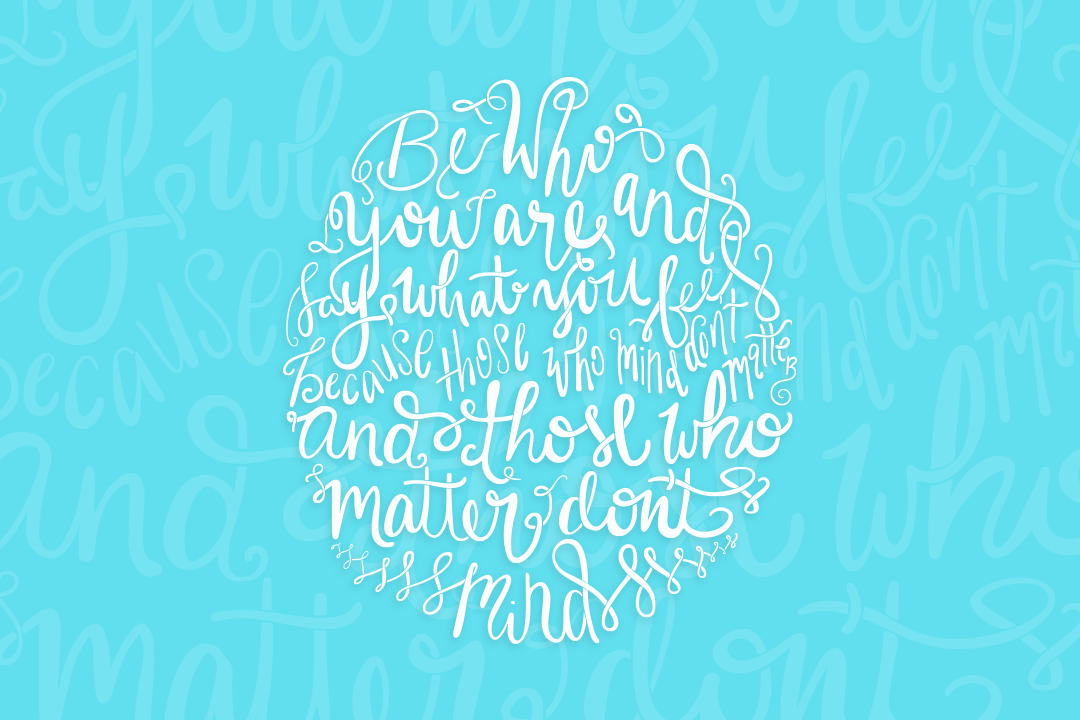 Be Who
you are and
say what you feel
because those who mind dont matter
and those who
matter don't
mind